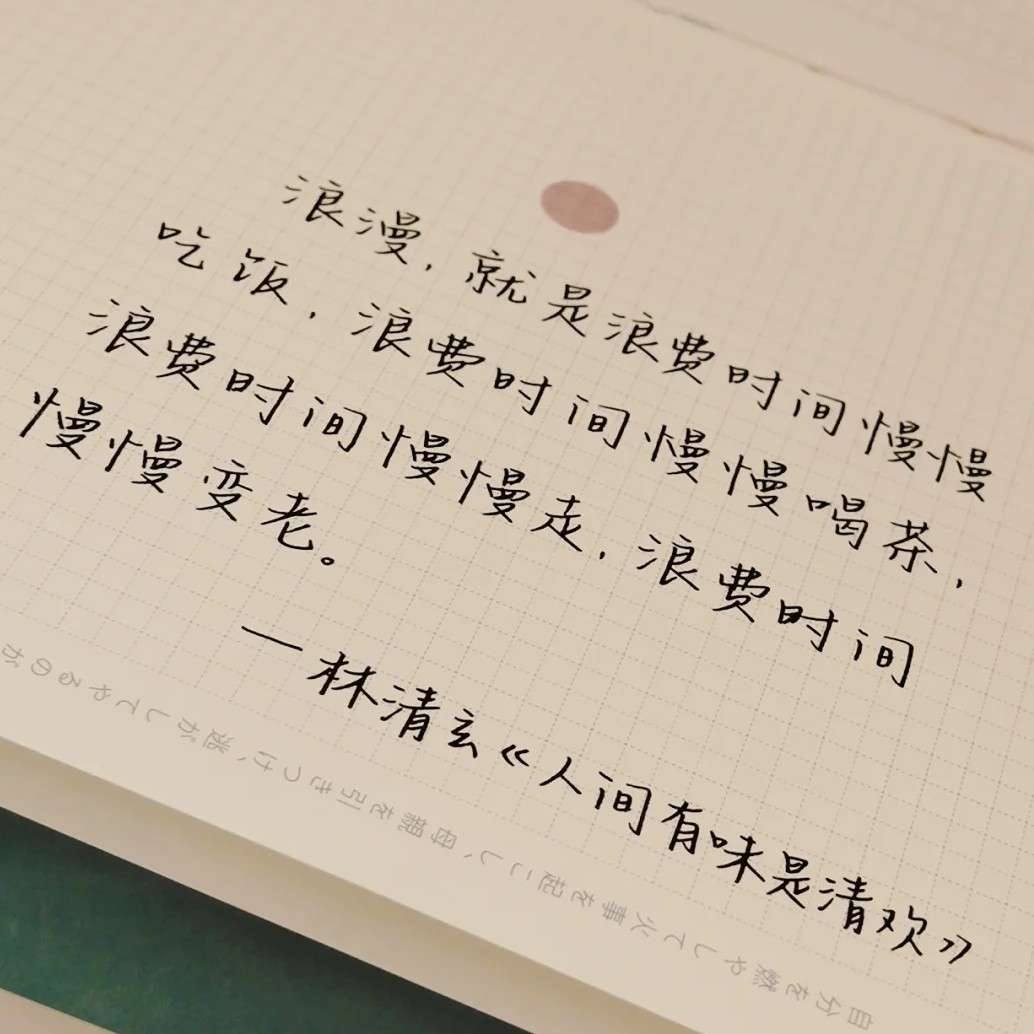 浪漫，就是浪费时间慢慢
吃饭，浪费时间慢慢喝茶，
浪费时间慢慢走，浪费时间
慢慢变老。
—林清玄《人间有味是清欢》
自分を燃やして火事を起こし、母親を引きつけ、逃がしてやるのが